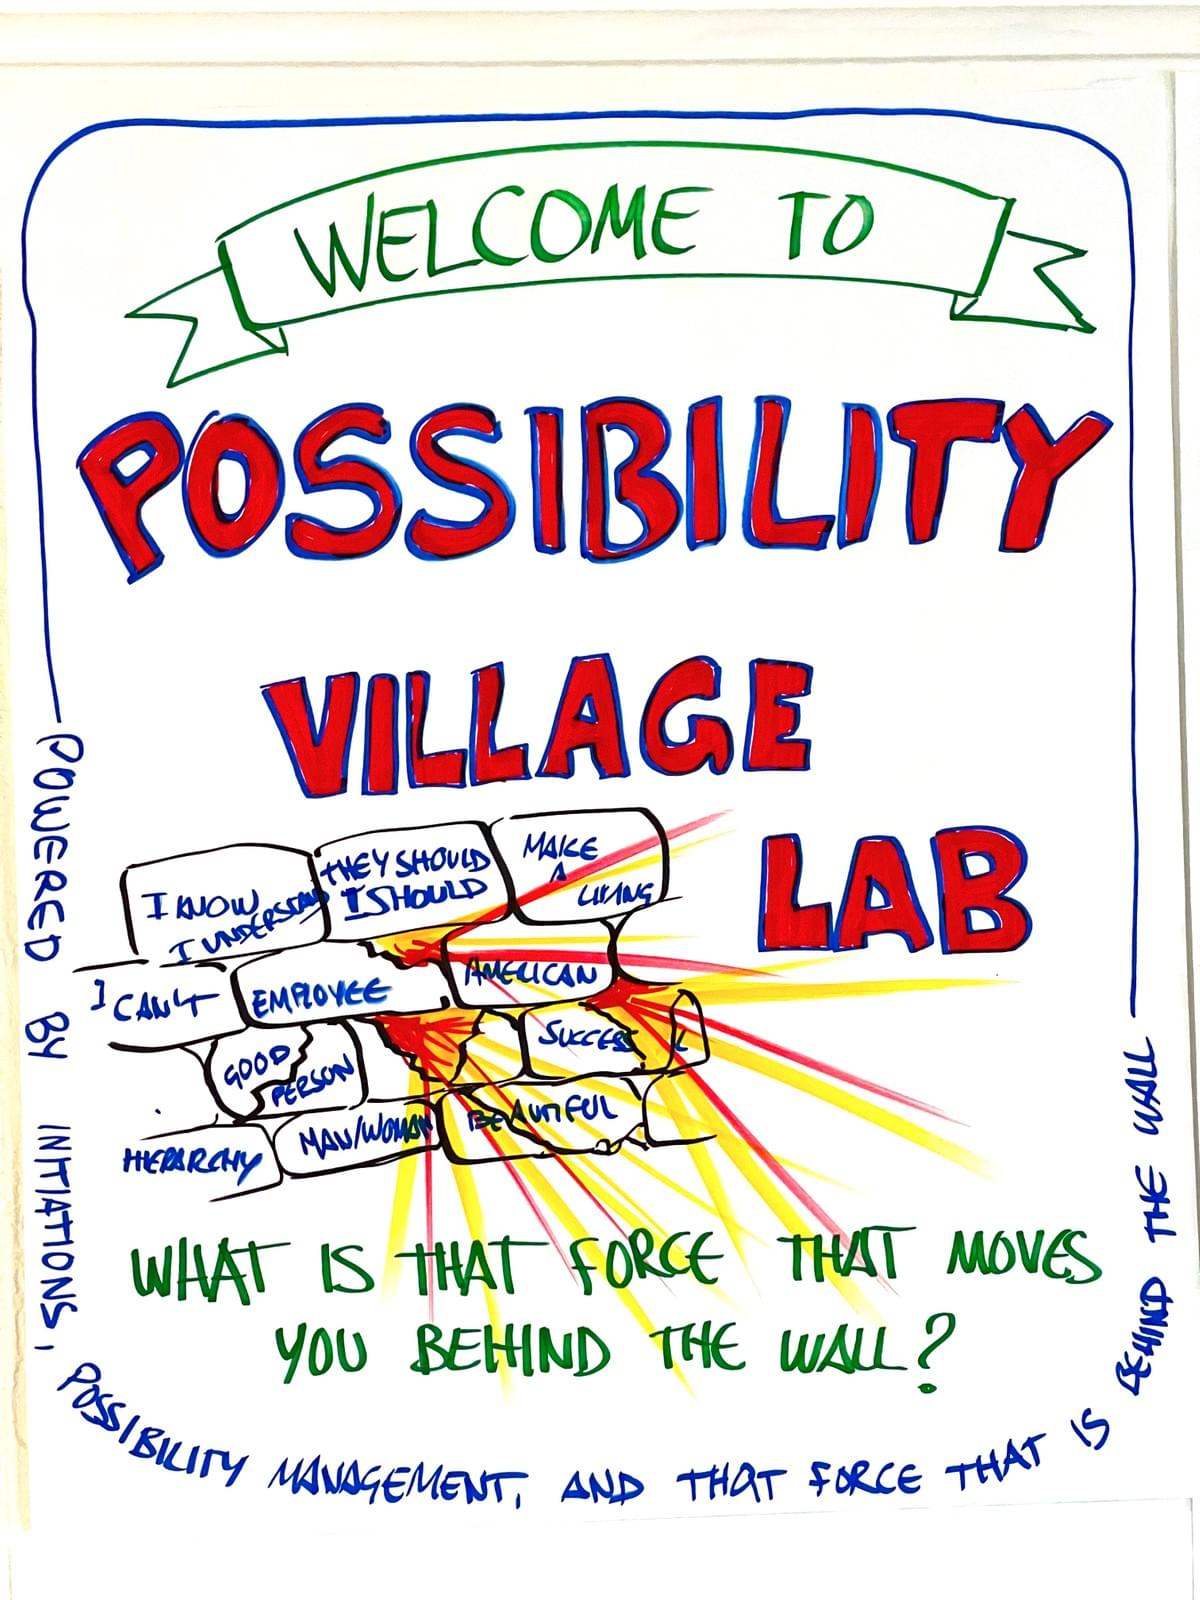 WELCOME TO
POSSIBILITY
VILLAGE
LAB
I KNOW
I UNDERSTAND
THEY SHOULD
I SHOULD
MAKE
A
LIVING
I CAN'T
EMPLOYEE
AMERICAN
GOOD
PERSON
SUCCESS
HIERARCHY
MAN/WOMAN
BEAUTIFUL
WHAT IS THAT FORCE THAT MOVES
YOU BEHIND THE WALL?
POWERED BY INITIATIONS, POSSIBILITY MANAGEMENT, AND THAT FORCE THAT IS BEHIND THE WALL